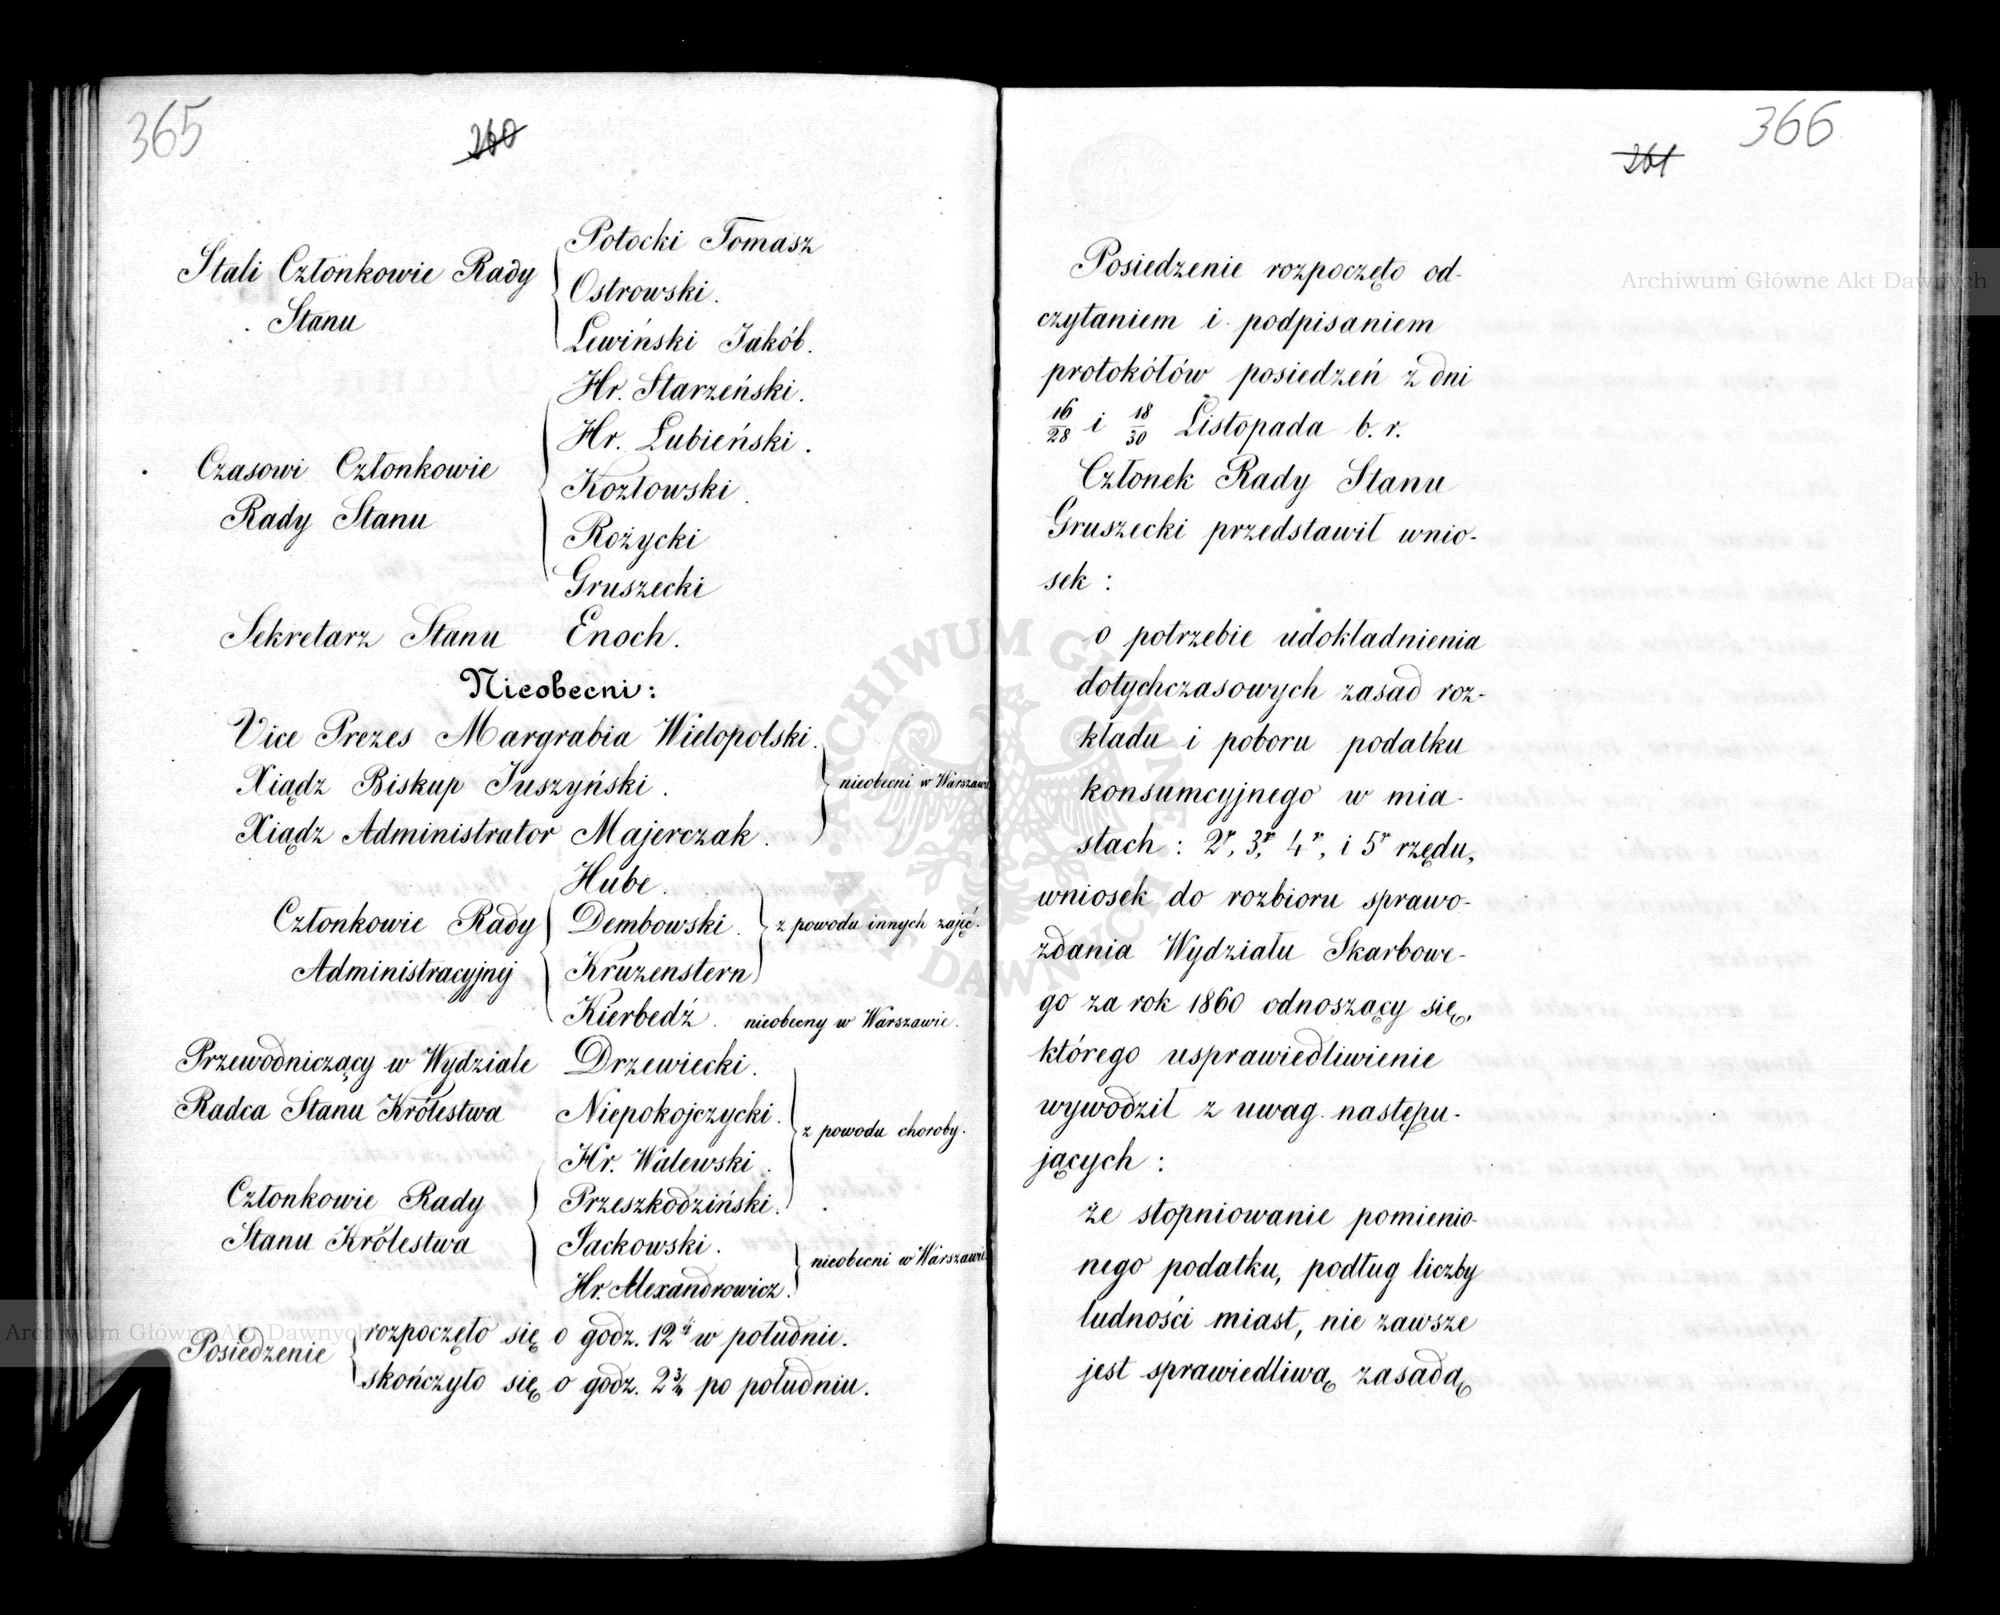 365
260
Stali Członkowie Rady
Stanu
Potocki Tomasz
Ostrowski.
Lewiński Jakób.
Czasowi Członkowie
Rady Stanu
Hr. Starzeński.
Hr. Łubieński.
Kozłowski.
Rożycki
Gruszecki
Sekretarz Stanu Enoch.
Nieobecni:
Vice Prezes Margrabia Wielopolski.
Xiądz Biskup Juszyński.
Xiądz Administrator Majerczak.
nieobecni w Warszawie
Członkowie Rady
Administracyjnej
Hube.
Dembowski.
Kruzenstern
z powodu innych zajęć.
Kierbedź. nieobecny w Warszawie.
Przewodniczący w Wydziale Drzewiecki.
Radca Stanu Królestwa Niepokojczycki.
z powodu choroby.
Członkowie Rady
Stanu Królestwa
Hr. Walewski.
Przeszkodziński.
Jackowski.
Hr. Alexandrowicz.
nieobecni w Warszawie.
Posiedzenie
rozpoczęto się o godz. 12 ⁴ w południe.
skończyło się o godz. 2¾ po południu.
366
261
Posiedzenie rozpoczęto od-
czytaniem i podpisaniem
protokółów posiedzeń z dni
16/28 i 18/30 Listopada b. r.
Członek Rady Stanu
Gruszecki przedstawił wnio-
sek:
o potrzebie udokładnienia
dotychczasowych zasad roz-
kładu i poboru podatku
konsumcyjnego w mia-
stach: 2r, 3r, 4r, i 5r rzędu,
wniosek do rozbioru sprawo-
zdania Wydziału Skarbowe-
go za rok 1860 odnoszący się,
którego usprawiedliwienie
wywodził z uwag następu-
jących:
że stopniowanie pomienio-
nego podatku, podług liczby
ludności miast, nie zawsze
jest sprawiedliwą zasadą
Archiwum Główne Akt Dawnych
Archiwum Główne Akt Dawnych
ARCHIWUM GŁÓWNE AKT DAWNYCH